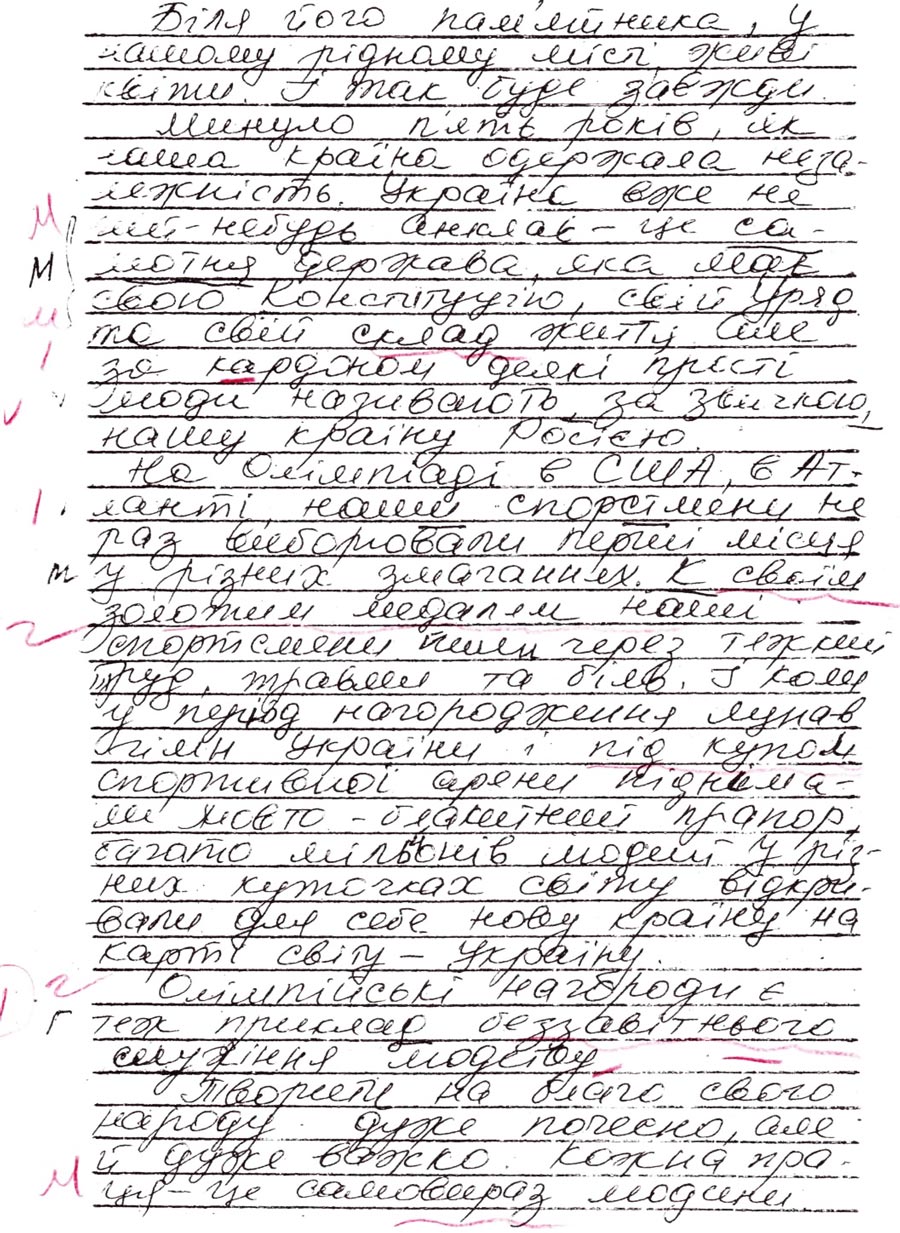 Біля його пам'ятника, у
нашому рідному місті, живі
квіти. І так буде завжди.
Минуло п'ять років, як
наша країна одержала неза-
лежність. Україна вже не
який-небудь анклав – це са-
мотня держава, яка має
свою Конституцію, свій Уряд
та свій склад життя, але
за кардоном деякі прості
люди називають, за звичкою,
нашу країну Росією.
На Олімпіаді в США, в Ат-
ланті, наши спортсмени не
раз виборювали перші місця
у різних змаганнях. К своїм
золотим медалям наші
спортсмени йшли через тяжкий
труд, травми та біль. І коли
у період нагородження лунав
гімн України і під купол
спортивної арени підніма-
ли жовто-блакитний прапор,
багато мільйонів людей у різ-
них куточках світу відкри-
вали для себе нову країну на
карті світу – Україну.
Олімпійські нагороди є
теж приклад беззавітнього
служіння людству.
Творити на благо свого
народу дуже почесно, але
й дуже важко. Кожна пра-
ця – це самовираз людини.